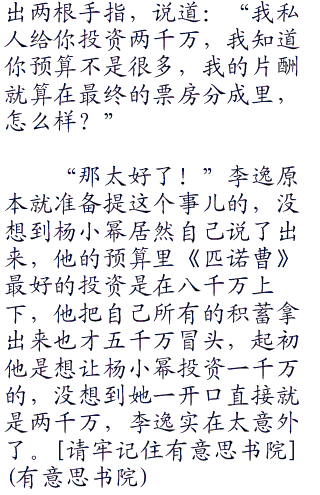 出两根手指，说道：“我私
人给你投资两千万，我知道
你预算不是很多，我的片酬
就算在最终的票房分成里，
怎么样？”
“那太好了！”李逸原
本就准备提这个事儿的，没
想到杨小幂居然自己说了出
来，他的预算里《匹诺曹》
最好的投资是在八千万上
下，他把自己所有的积蓄拿
出来也才五千万冒头，起初
他是想让杨小幂投资一千万
的，没想到她一开口直接就
是两千万，李逸实在太意外
了。[请牢记住有意思书院]
(有意思书院)